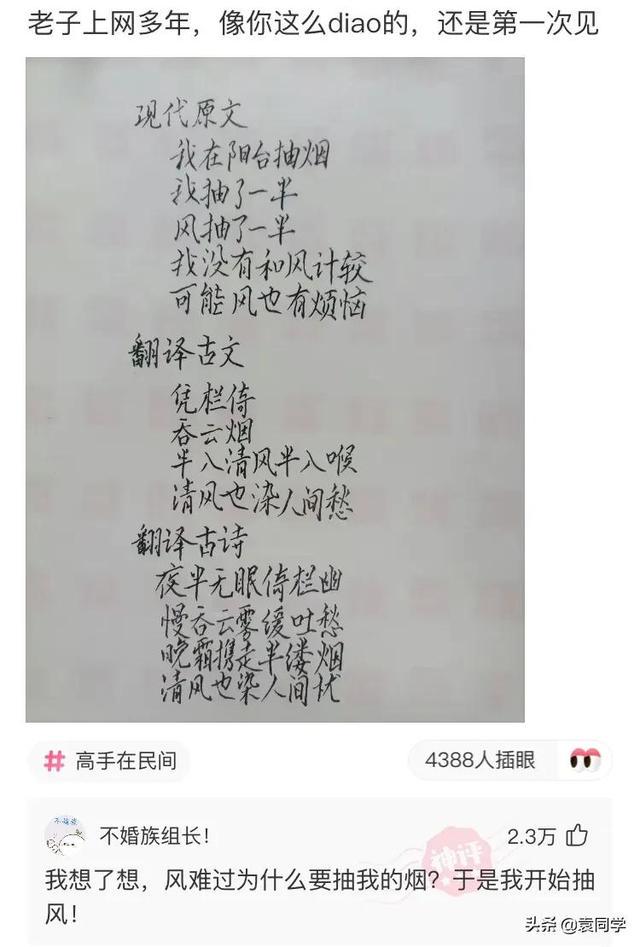 老子上网多年，像你这么diao的，还是第一次见
现代原文
我在阳台抽烟
我抽了一半
风抽了一半
我没有和风计较
可能风也有烦恼
翻译古文
凭栏倚
吞云烟
半入清风半入喉
清风也染人间愁
翻译古诗
夜半无眠倚栏幽
慢吞云雾缓吐愁
晚霜携走半缕烟
清风也染人间忧
# 高手在民间
4388人插眼
不婚族
不婚族组长！
神评
2.3万
我想了想，风难过为什么要抽我的烟？于是我开始抽
风！
头条 @袁同学